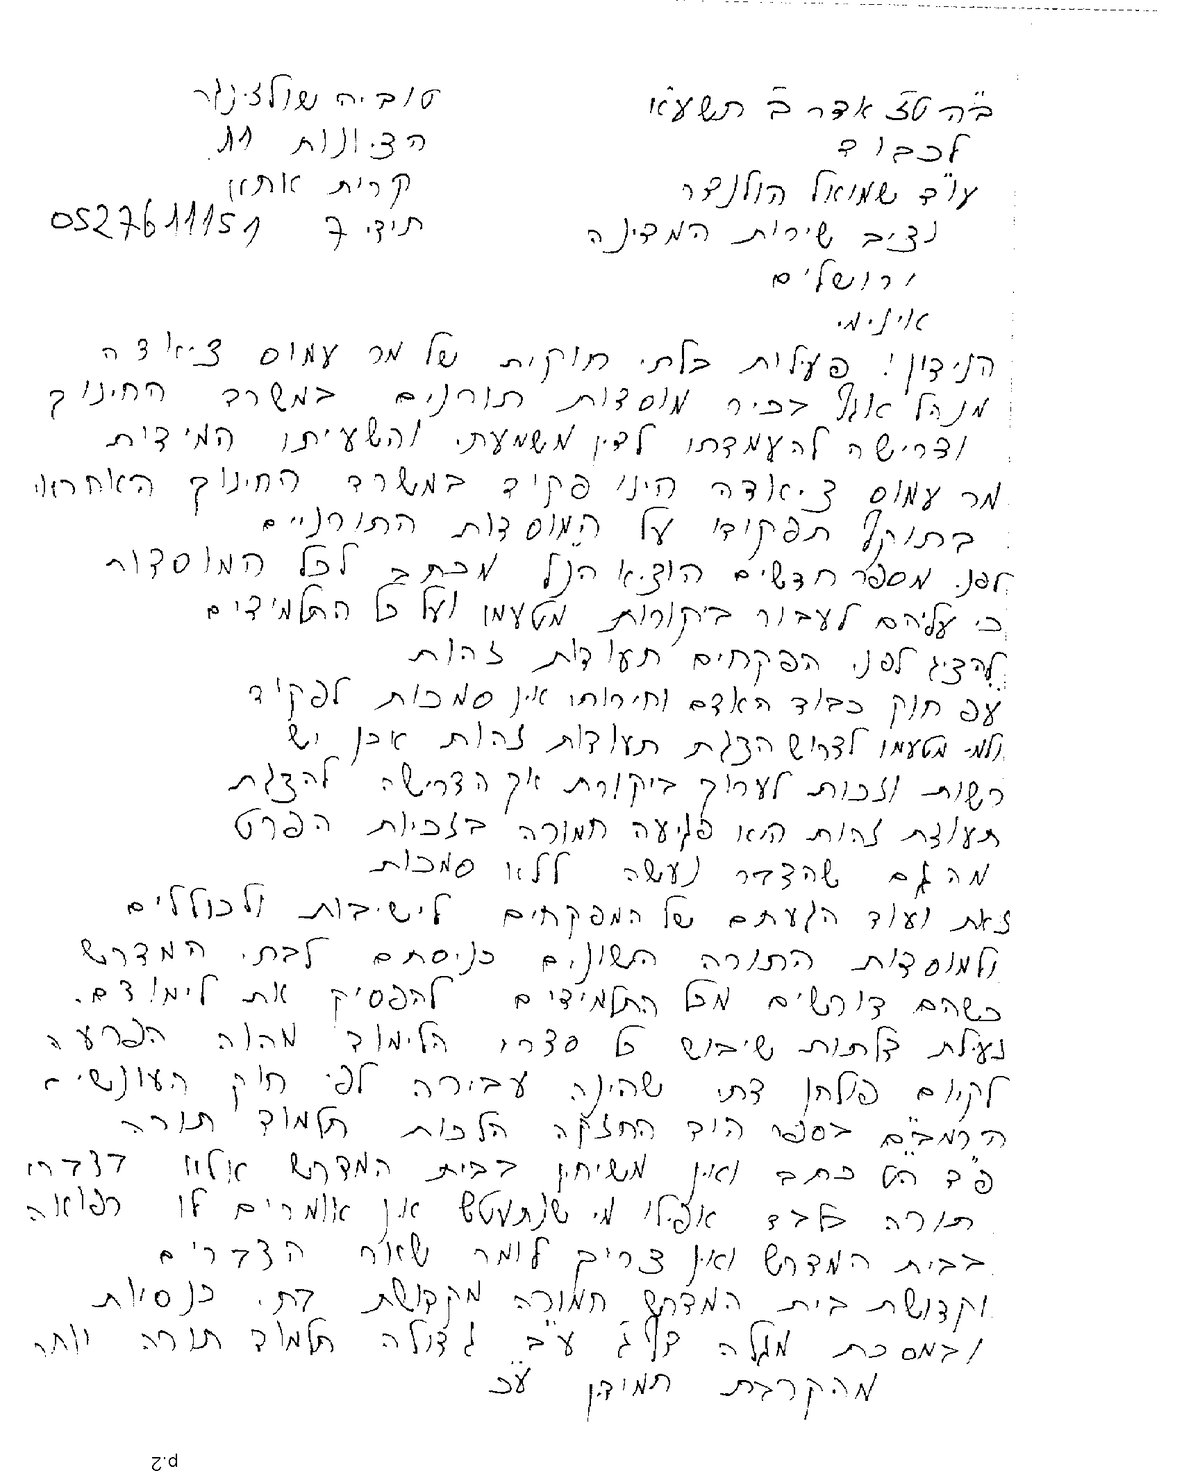 ב"ה ט"ז אדר ב' תשע"א
לכבוד
עו"ד שמואל הולנדר
נציב שירות המדינה
ירושלים
א.נ.
טוביה שולזינגר
הציונות 11
קרית אתא
תיד 7 0527611151
הנידון: פעילות בלתי חוקית של מר עמוס ציאדה
מנהל אגף בכיר מוסדות תורנים במשרד החינוך
ודרישה להעמדתו לדין משמעתי והשעייתו המידית
מר עמוס ציאדה הינו פקיד במשרד החינוך האחראי
בתוקף תפקידו על המוסדות התורניים
לפני מספר חדשים הוציא הנ"ל מכתב לכל המוסדות
כי עליהם לעבור ביקורות מטעמו ועל כל התלמידים
להציג לפני הפקחים תעודות זהות
עפ חוק כבוד האדם וחירותו אין סמכות לפקיד
ולמי מטעמו לדרוש הצגת תעודות זהות אכן יש
רשות וזכות לערוך ביקורת אך הדרישה להצגת
תעודת זהות היא פגיעה חמורה בזכיות הפרט
מה גם שהדבר נעשה ללא סמכות
זאת ועוד הגעתם של המפקחים לישיבות ולכוללים
ולמוסדות התורה השונים כניסתם לבתי המדרש
כשהם דורשים מכל התלמידים להפסיק את לימודם.
נעילת דלתות שיבוש כל סדרי הלימוד מהוה הפרעה
לקיום פולחן דתי שהינה עבירה לפי חוק העונשין
הרמב"ם בספר היד החזקה הלכות תלמוד תורה
פ"ד ה"ט כתב ואין משיחין בבית המדרש אלא בדברי
תורה בלבד אפילו מי שנתעטש אין אומרים לו רפואה
בבית המדרש ואין צריך לומר שאר הדברים
וקדושת בית המדרש חמורה מקדושת בתי כנסיות
ובמסכת מגלה דף ג' ע"ב גדולה תלמוד תורה יותר
מהקרבת תמידין ע"כ
p.2